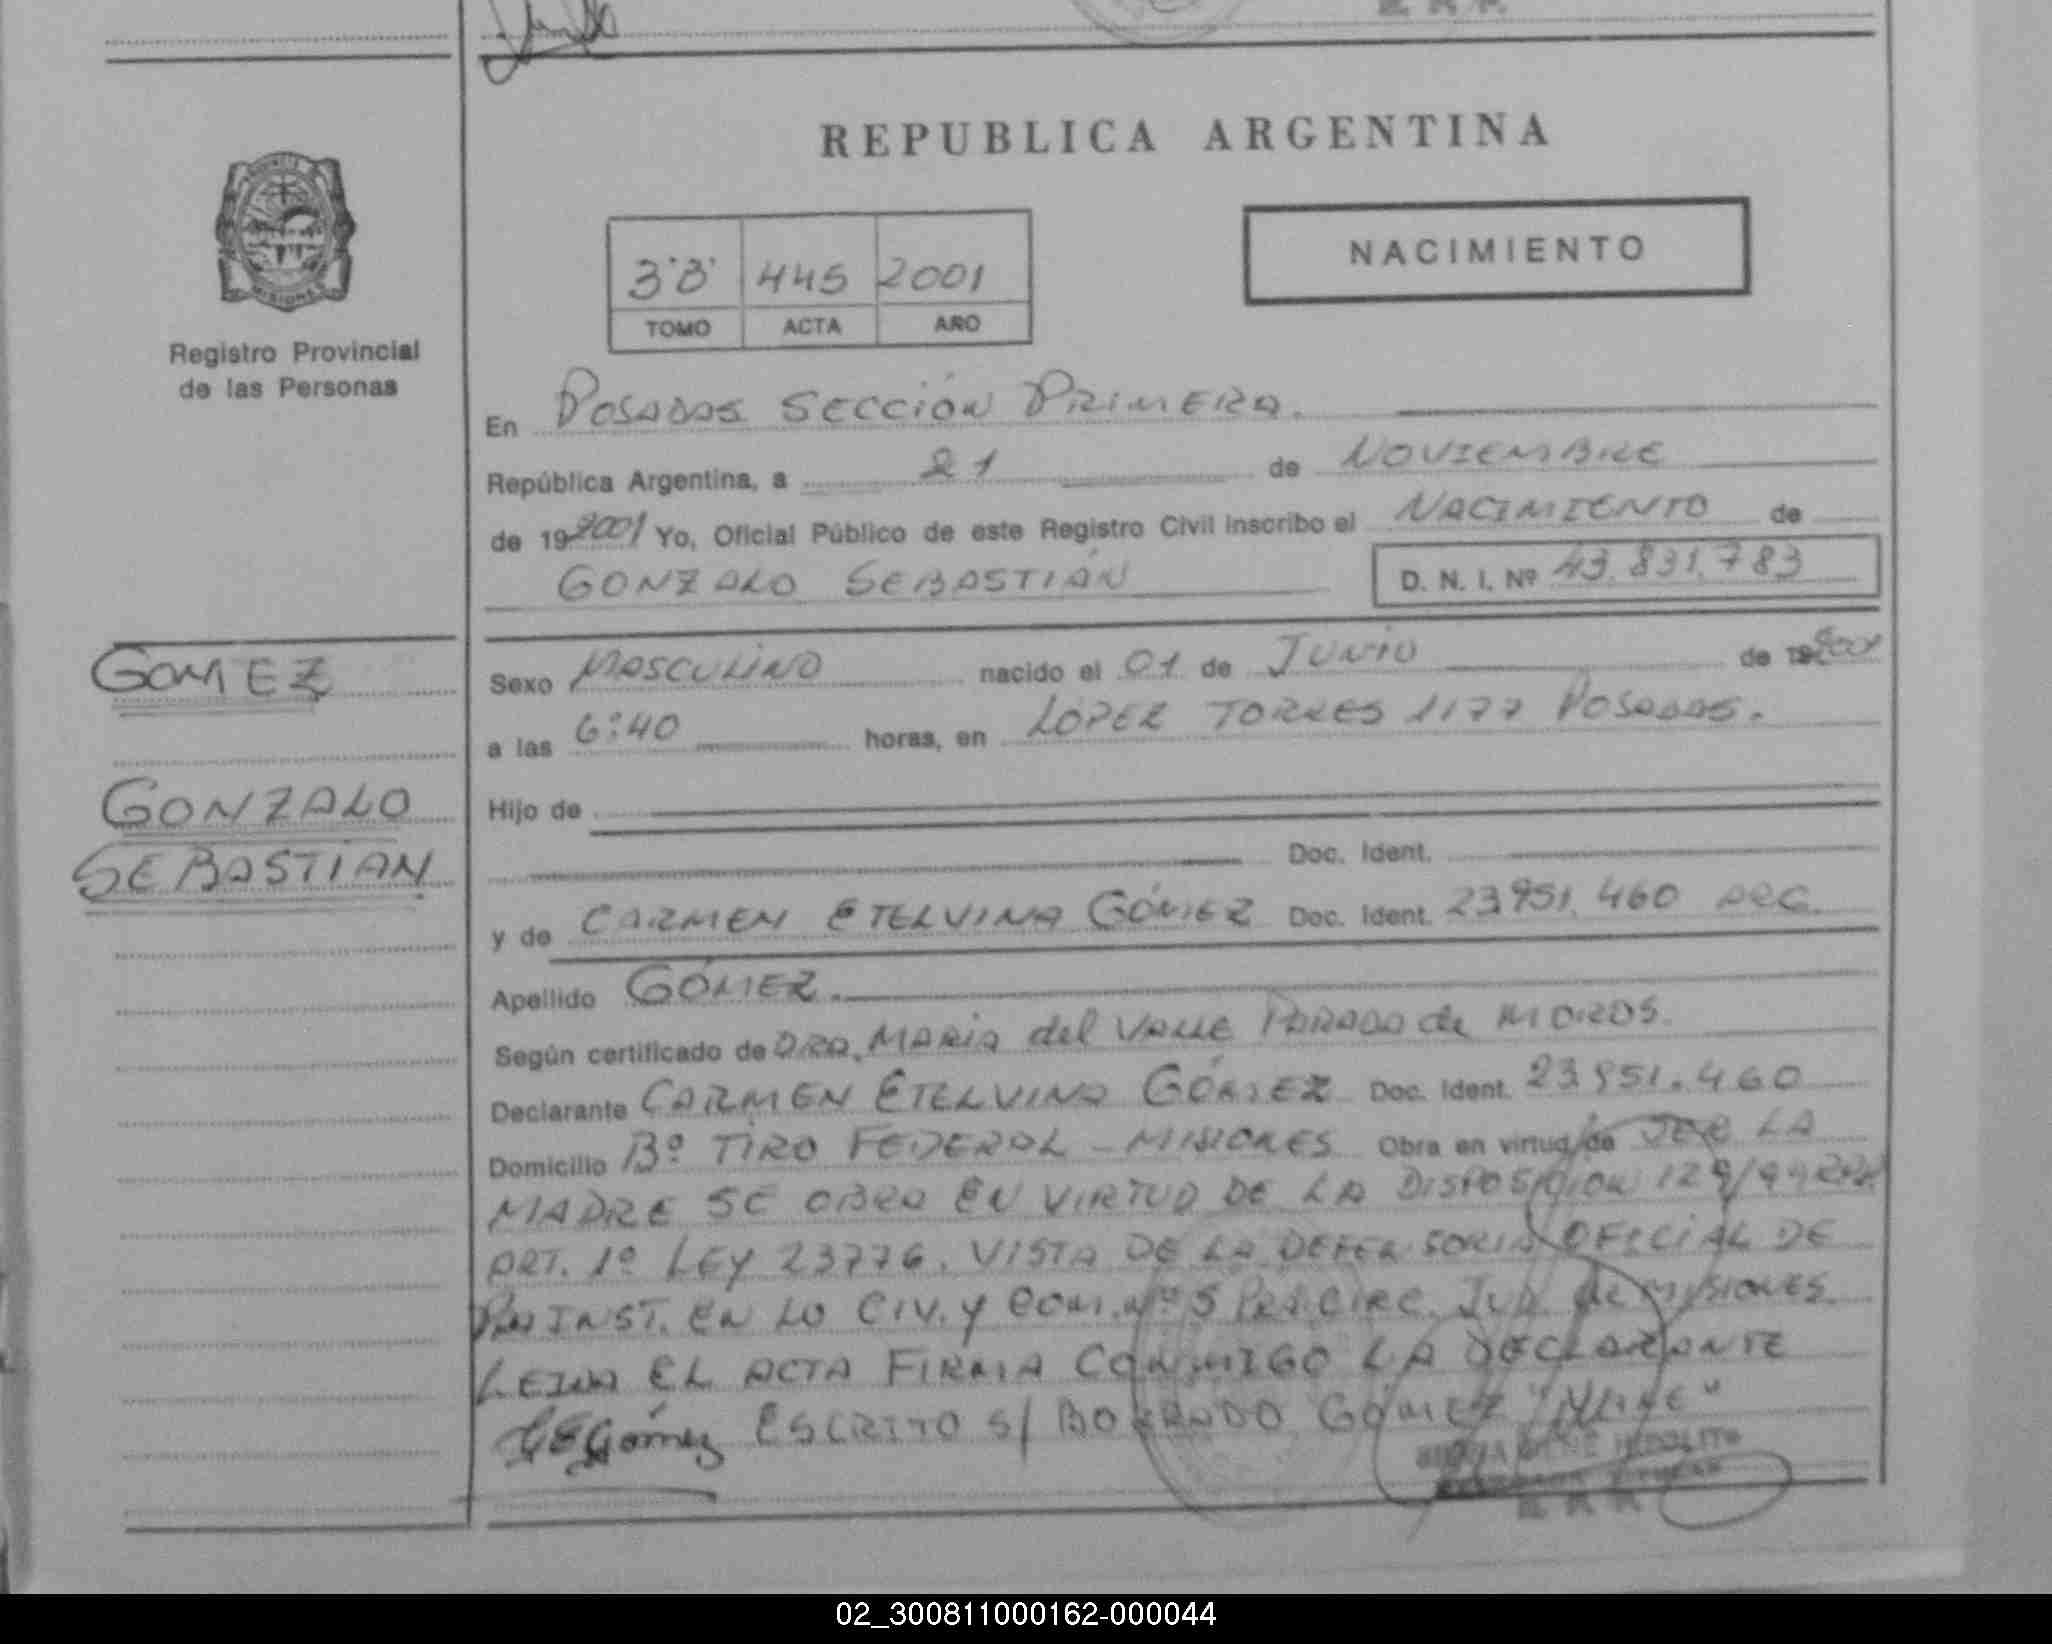 REPUBLICA ARGENTINA
NACIMIENTO
445 2001
TOMO ACTA AÑO
Registro Provincial
de las Personas
En POSADAS SECCIÓN PRIMERA.
República Argentina, a 21 de NOVIEMBRE
de 192001 Yo, Oficial Público de este Registro Civil inscribo el NACIMIENTO de
GONZALO SEBASTIÁN D. N. I. Nº 43.831.783
GOMEZ
GONZALO
SEBASTIAN
Sexo MASCULINO nacido el 01 de JUNIO de 192001
a las 6:40 horas, en LOPEZ TORRES 1177 POSADAS.
Hijo de
Doc. Ident.
y de CARMEN ETELVINA GÓMEZ Doc. Ident. 23951.460 ARG.
Apellido GÓMEZ.
Según certificado de DRA. MARIA del VALLE PARADA de MOROS.
Declarante CARMEN ETELVINA GÓMEZ Doc. Ident. 23951.460
Domicilio Bº TIRO FEDERAL - MISIONES Obra en virtud de SER LA
MADRE SE OBRA EN VIRTUD DE LA DISPOSICION 129/99
ART. 1º LEY 23776. VISTA DE LA DEFENSORIA OFICIAL DE
INST. EN LO CIV. Y COM. Nº 5 CIRC. JUD. de MISIONES.
LEIDA EL ACTA FIRMA CONMIGO LA DECLARANTE
Gómez ESCRITO S/ BORRADO GÓMEZ "NUEVE"
02_300811000162-000044